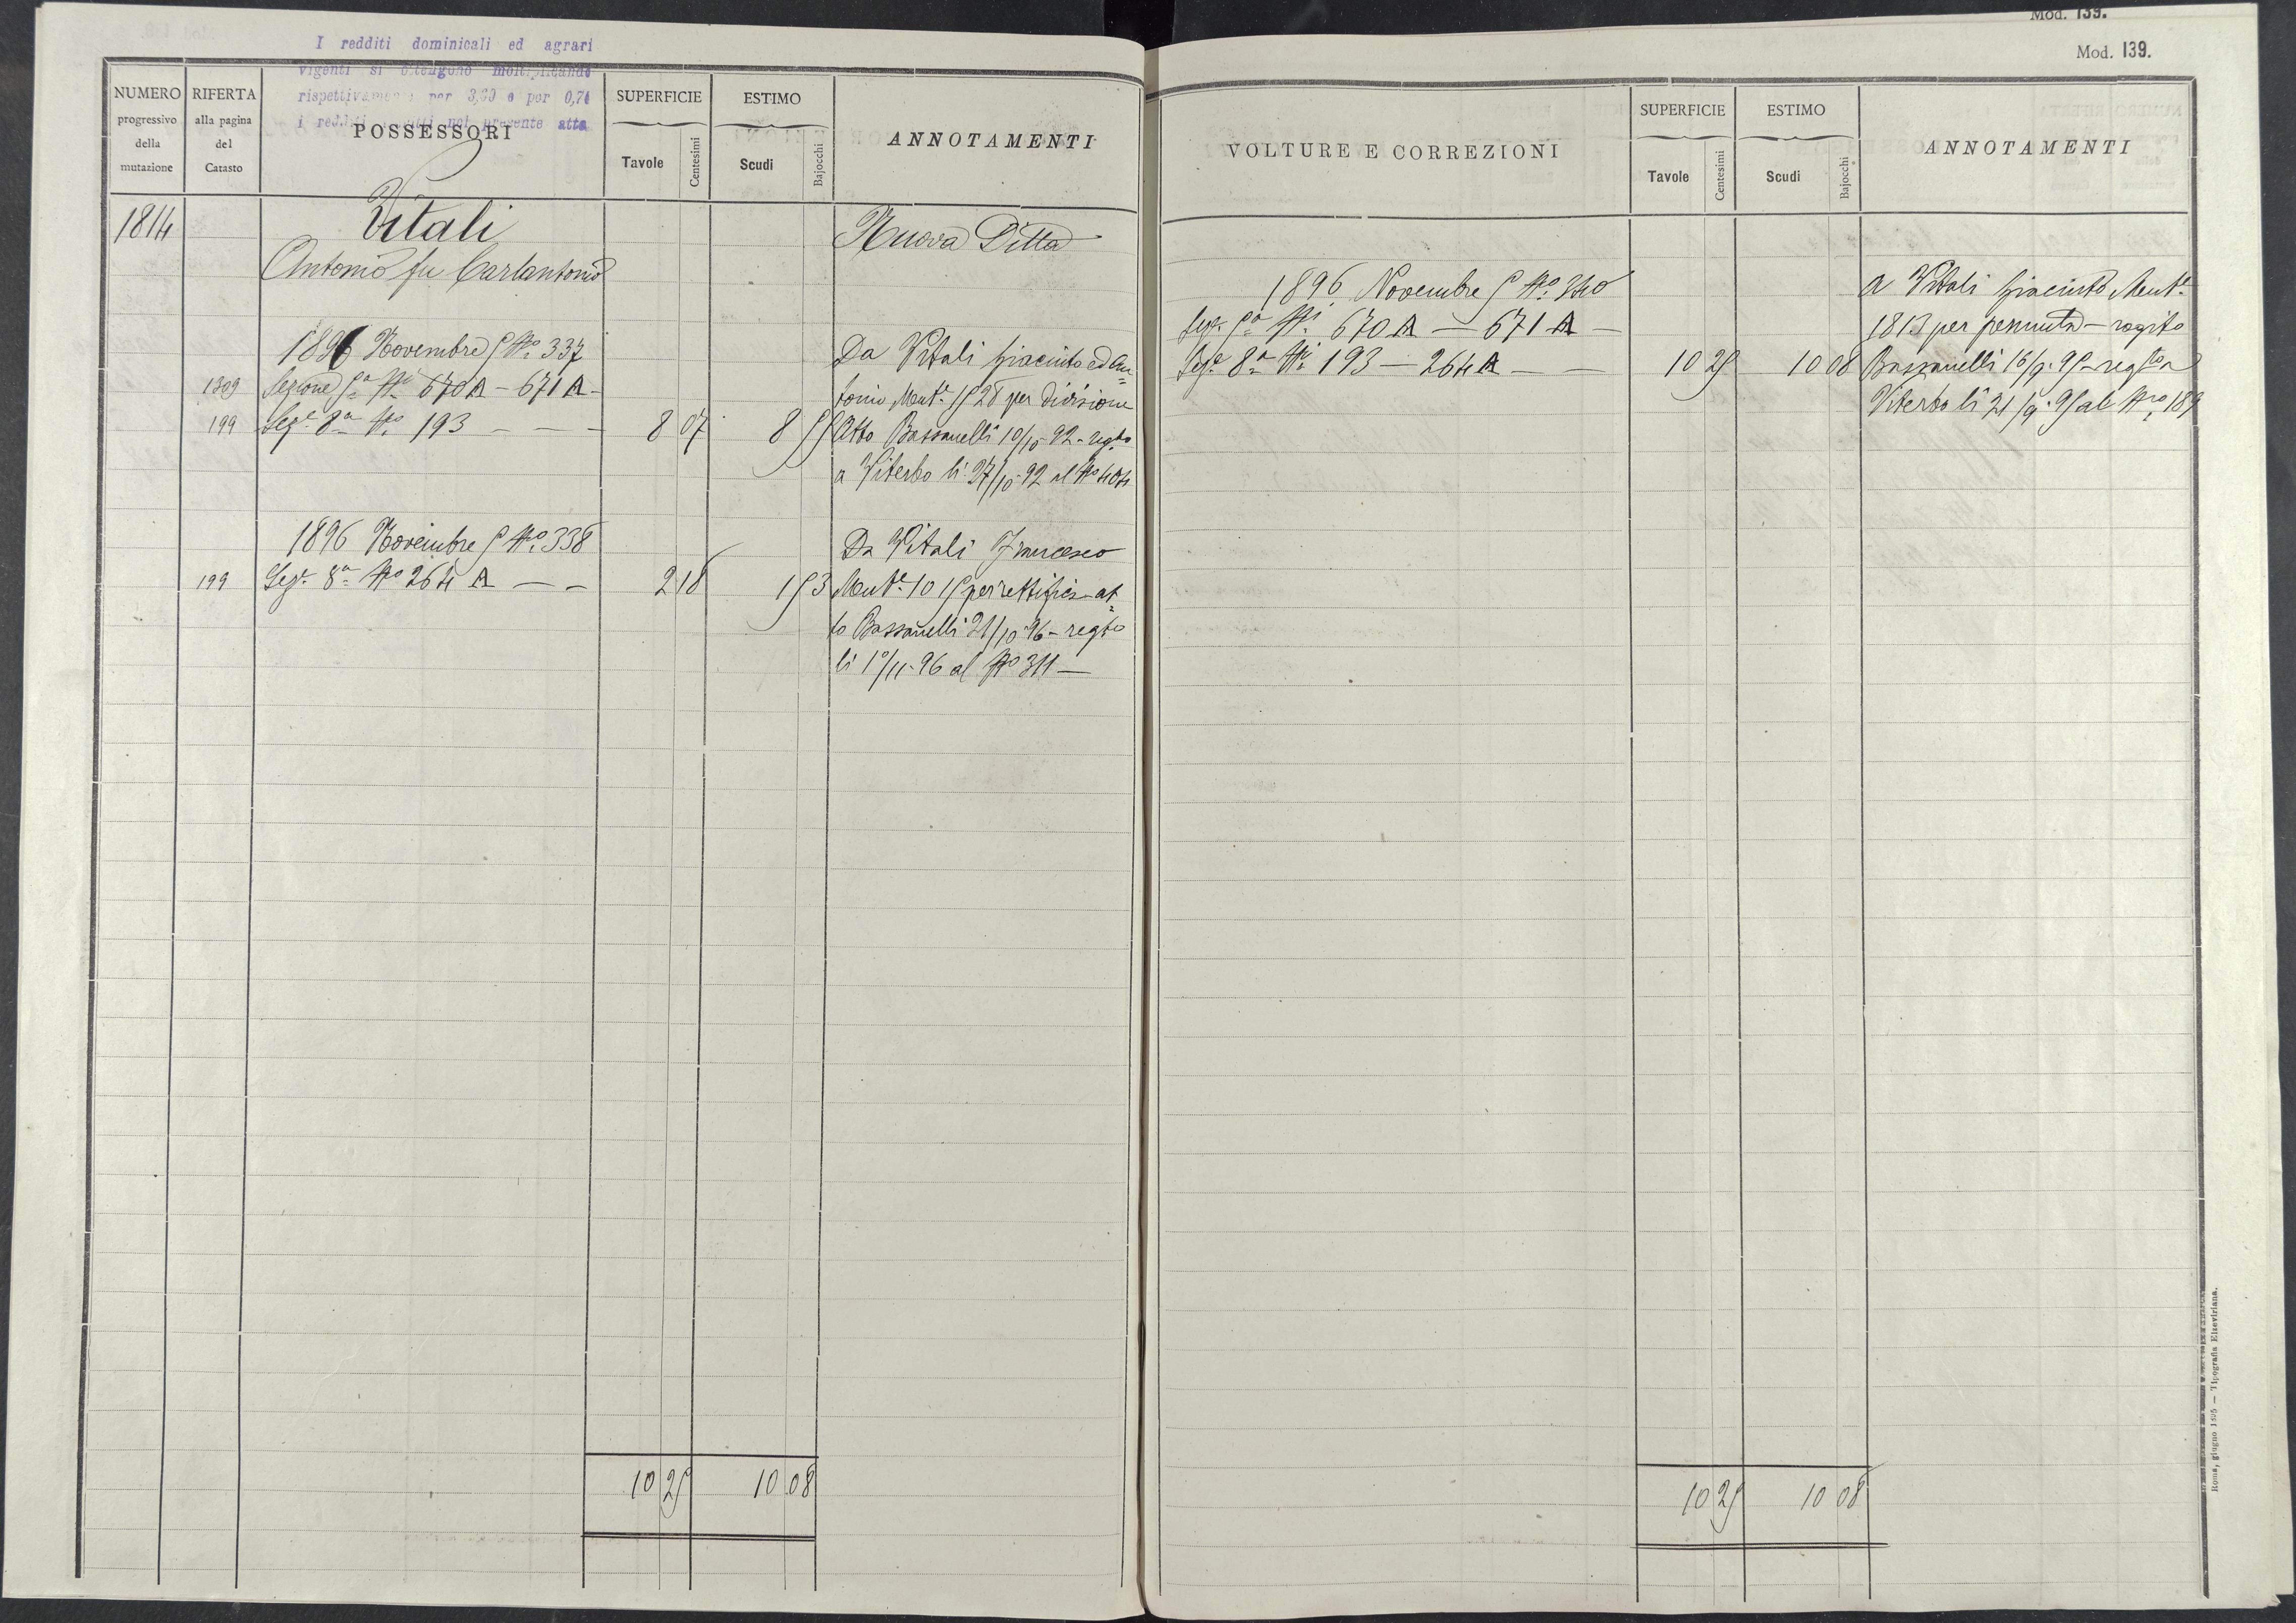 Mod. 139.
Mod. 139.
I redditi dominicali ed agrari
vigenti si ottengono moltiplicando
rispettivamente per 3,30 e per 0,74
i redditi nel presente atto
NUMERO progressivo della mutazione
RIFERTA alla pagina del Catasto
POSSESSORI
SUPERFICIE
Tavole
Centesimi
ESTIMO
Scudi
Bajocchi
ANNOTAMENTI
1814
Vitali
Nuova Ditta
Antonio fu Carlantonio
1896 Novembre 5 No. 337
Da Vitali Giacinto ed An=
1309 Sezione 5a Ni 670 A - 671 A -
tonio Mut.e 1528 per divisione
199 Sez.e 8a No. 193 - - - 8 07 8 55
Atto Bassanelli 10/10-92 - regto
a Viterbo li 27/10-92 al No 404
1896 Novembre 5 No. 338
Da Vitali Francesco
199 Sez.e 8a No 264 A - - 2 18 1 53
Mut.e 1015 per rettifica - at=
to Bassanelli 21/10-96 - regto
li 1°/11-96 al No 311 -
10 25 10 08
VOLTURE E CORREZIONI
SUPERFICIE
Tavole
Centesimi
ESTIMO
Scudi
Bajocchi
ANNOTAMENTI
1896 Novembre 5 No. 340
A Vitali Giacinto Mut.e
Sez. 5a Ni 670 A - 671 A -
1813 per permuta - rogito
Sez.e 8a Ni 193 - 264 A - - 10 25 10 08
Bassanelli 16/9-95 - regto a
Viterbo li 21/9-95 al No. 189
10 25 10 08
Roma, giugno 1895 — Tipografia Elzeviriana.